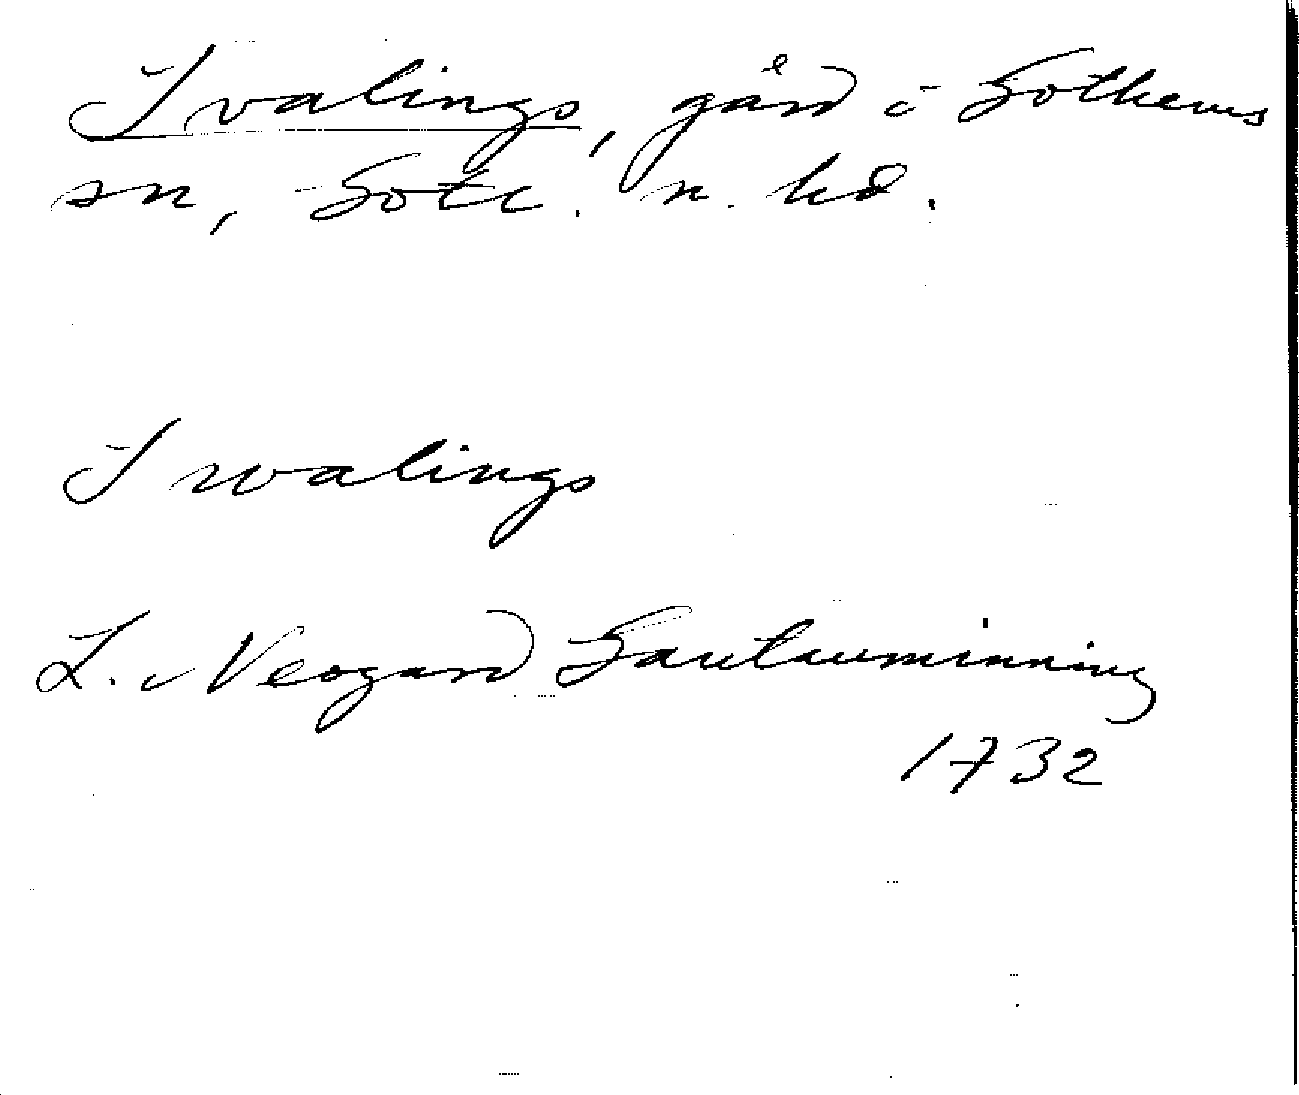 Ivalings, gård i Gothems
sn, Gotl. n. hd.
Iwalings
L. Neogard Gautauminning
1732